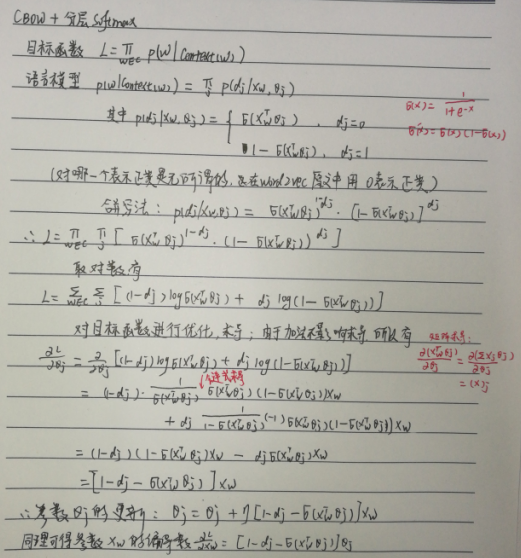 CBOW + 分层 Softmax
目标函数 L = ∏_{w∈C} p(w|Context(w))
语言模型 p(w|Context(w)) = ∏_j p(dj|xw, θj)
σ(x) = 1/(1+e^-x)
σ'(x) = σ(x)(1-σ(x))
其中 p(dj|xw, θj) = { σ(xwᵀθj) , dj=0
1-σ(xwᵀθj) , dj=1
(对哪一个表示正类是无所谓的, 在word2vec原文中用0表示正类)
合写法: p(dj|xw, θj) = σ(xwᵀθj)^{1-dj} · [1-σ(xwᵀθj)]^{dj}
∴ L = ∏_{w∈C} ∏_j [σ(xwᵀθj)^{1-dj} · (1-σ(xwᵀθj))^{dj}]
取对数有
L = Σ_{w∈C} Σ_j [(1-dj) log σ(xwᵀθj) + dj log(1-σ(xwᵀθj))]
对目标函数进行优化, 求导: 由于加法不影响求导 所以有
求导:
∂(xwᵀθj)/∂θj = ∂(Σxjθj)/∂θj
= (x)j
∂L/∂θj = ∂/∂θj [(1-dj) log σ(xwᵀθj) + dj log(1-σ(xwᵀθj))]
= (1-dj) · 1/σ(xwᵀθj) σ(xwᵀθj)(1-σ(xwᵀθj))xw
+ dj 1/(1-σ(xwᵀθj)) (-1) σ(xwᵀθj)(1-σ(xwᵀθj))xw
= (1-dj)(1-σ(xwᵀθj))xw - djσ(xwᵀθj)xw
= [1-dj-σ(xwᵀθj)]xw
∴ 参数θj的更新: θj = θj + η[1-dj-σ(xwᵀθj)]xw
同理可得参数xw的偏导数 ∂L/∂xw = [1-dj-σ(xwᵀθj)]θj